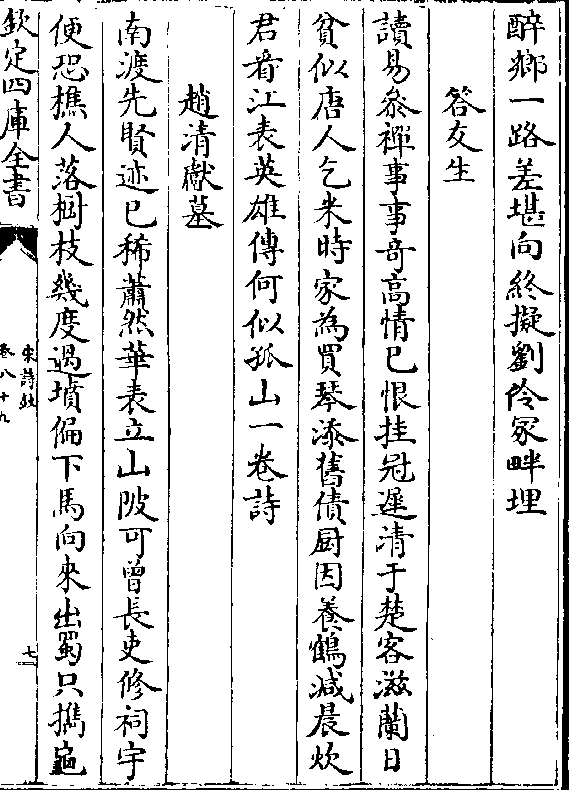 醉鄉一路差堪向終擬劉伶冢畔埋
答友生
讀易參禪事事奇高情已恨挂冠遲清于楚客滋蘭日
貧似唐人乞米時家為買琴添舊債厨因養鶴減晨炊
君看江表英雄傳何似孤山一卷詩
趙清獻墓
南渡先賢迹已稀蕭然華表立山陂可曾長吏修祠宇
便恐樵人落樹枝幾度過墳偏下馬向來出蜀只攜龜
欽定四庫全書
宋詩鈔
卷八十九
七